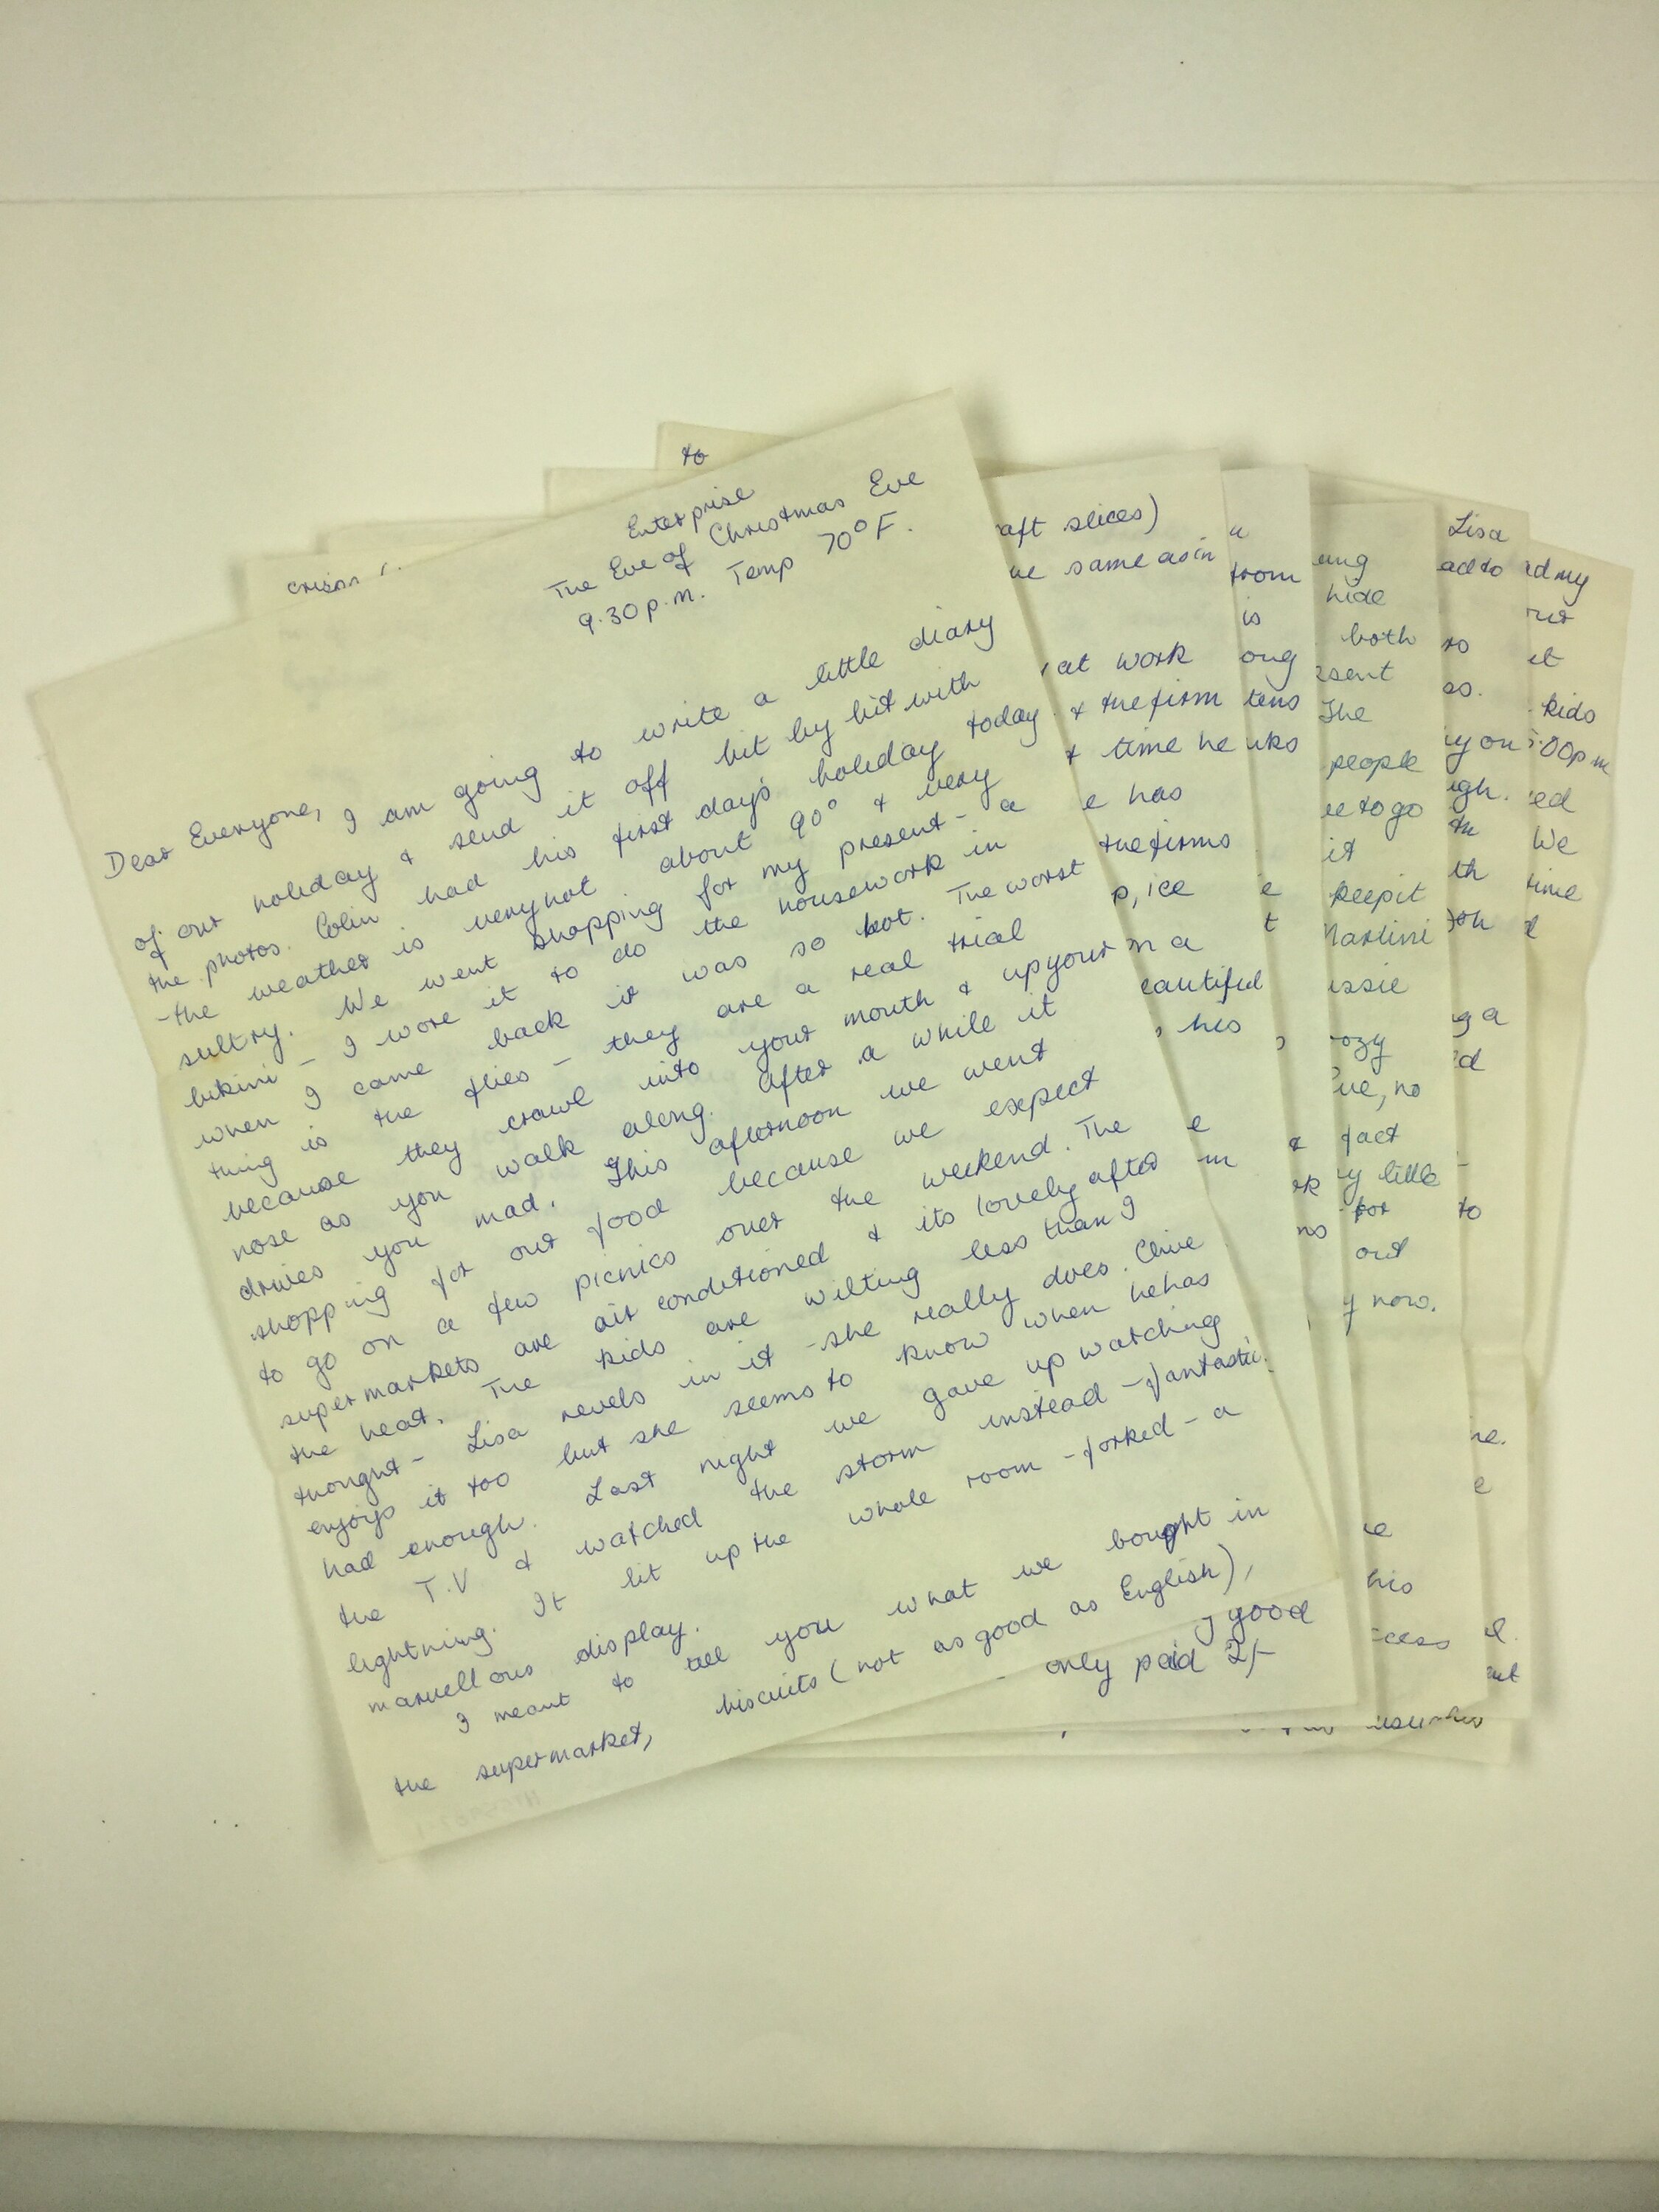 Enterprise
The Eve of Christmas Eve
9.30 p.m. Temp 70°F.
Dear Everyone, I am going to write a little diary
of our holiday & send it off bit by bit with
the photos. Colin had his first day's holiday today
- the weather is very hot. about 90° & very
sultry. We went shopping for my present - a
bikini - I wore it to do the housework in
when I came back it was so hot. The worst
thing is the flies - they are a real trial
because they crawl into your mouth & up your
nose as you walk along. After a while it
drives you mad. This afternoon we went
shopping for our food because we expect
to go on a few picnics over the weekend. The
supermarkets are air conditioned & its lovely after
the heat. The kids are wilting less than I
thought - Lisa revels in it - she really does. Clive
enjoys it too but she seems to know when he has
had enough. Last night we gave up watching
the T.V & watched the storm instead - fantastic
lightning. It lit up the whole room - forked - a
marvellous display.
I meant to tell you what we bought in
the supermarket, biscuits (not as good as English),
to
aft slices)
same as in
at work
& the firm
& time he
e has
the firms
p, ice
n a
eautiful
, his
good
only paid 2/-
from
is
hide
both
The
people
ee to go
it
keep it
Martini
ussie
ozy
Eve, no
& fact
y little
for
out
y now.
Lisa
ad to
so
so.
y on
ugh.
to
d my
it
kids
5.00 p m
ed
We
time
his